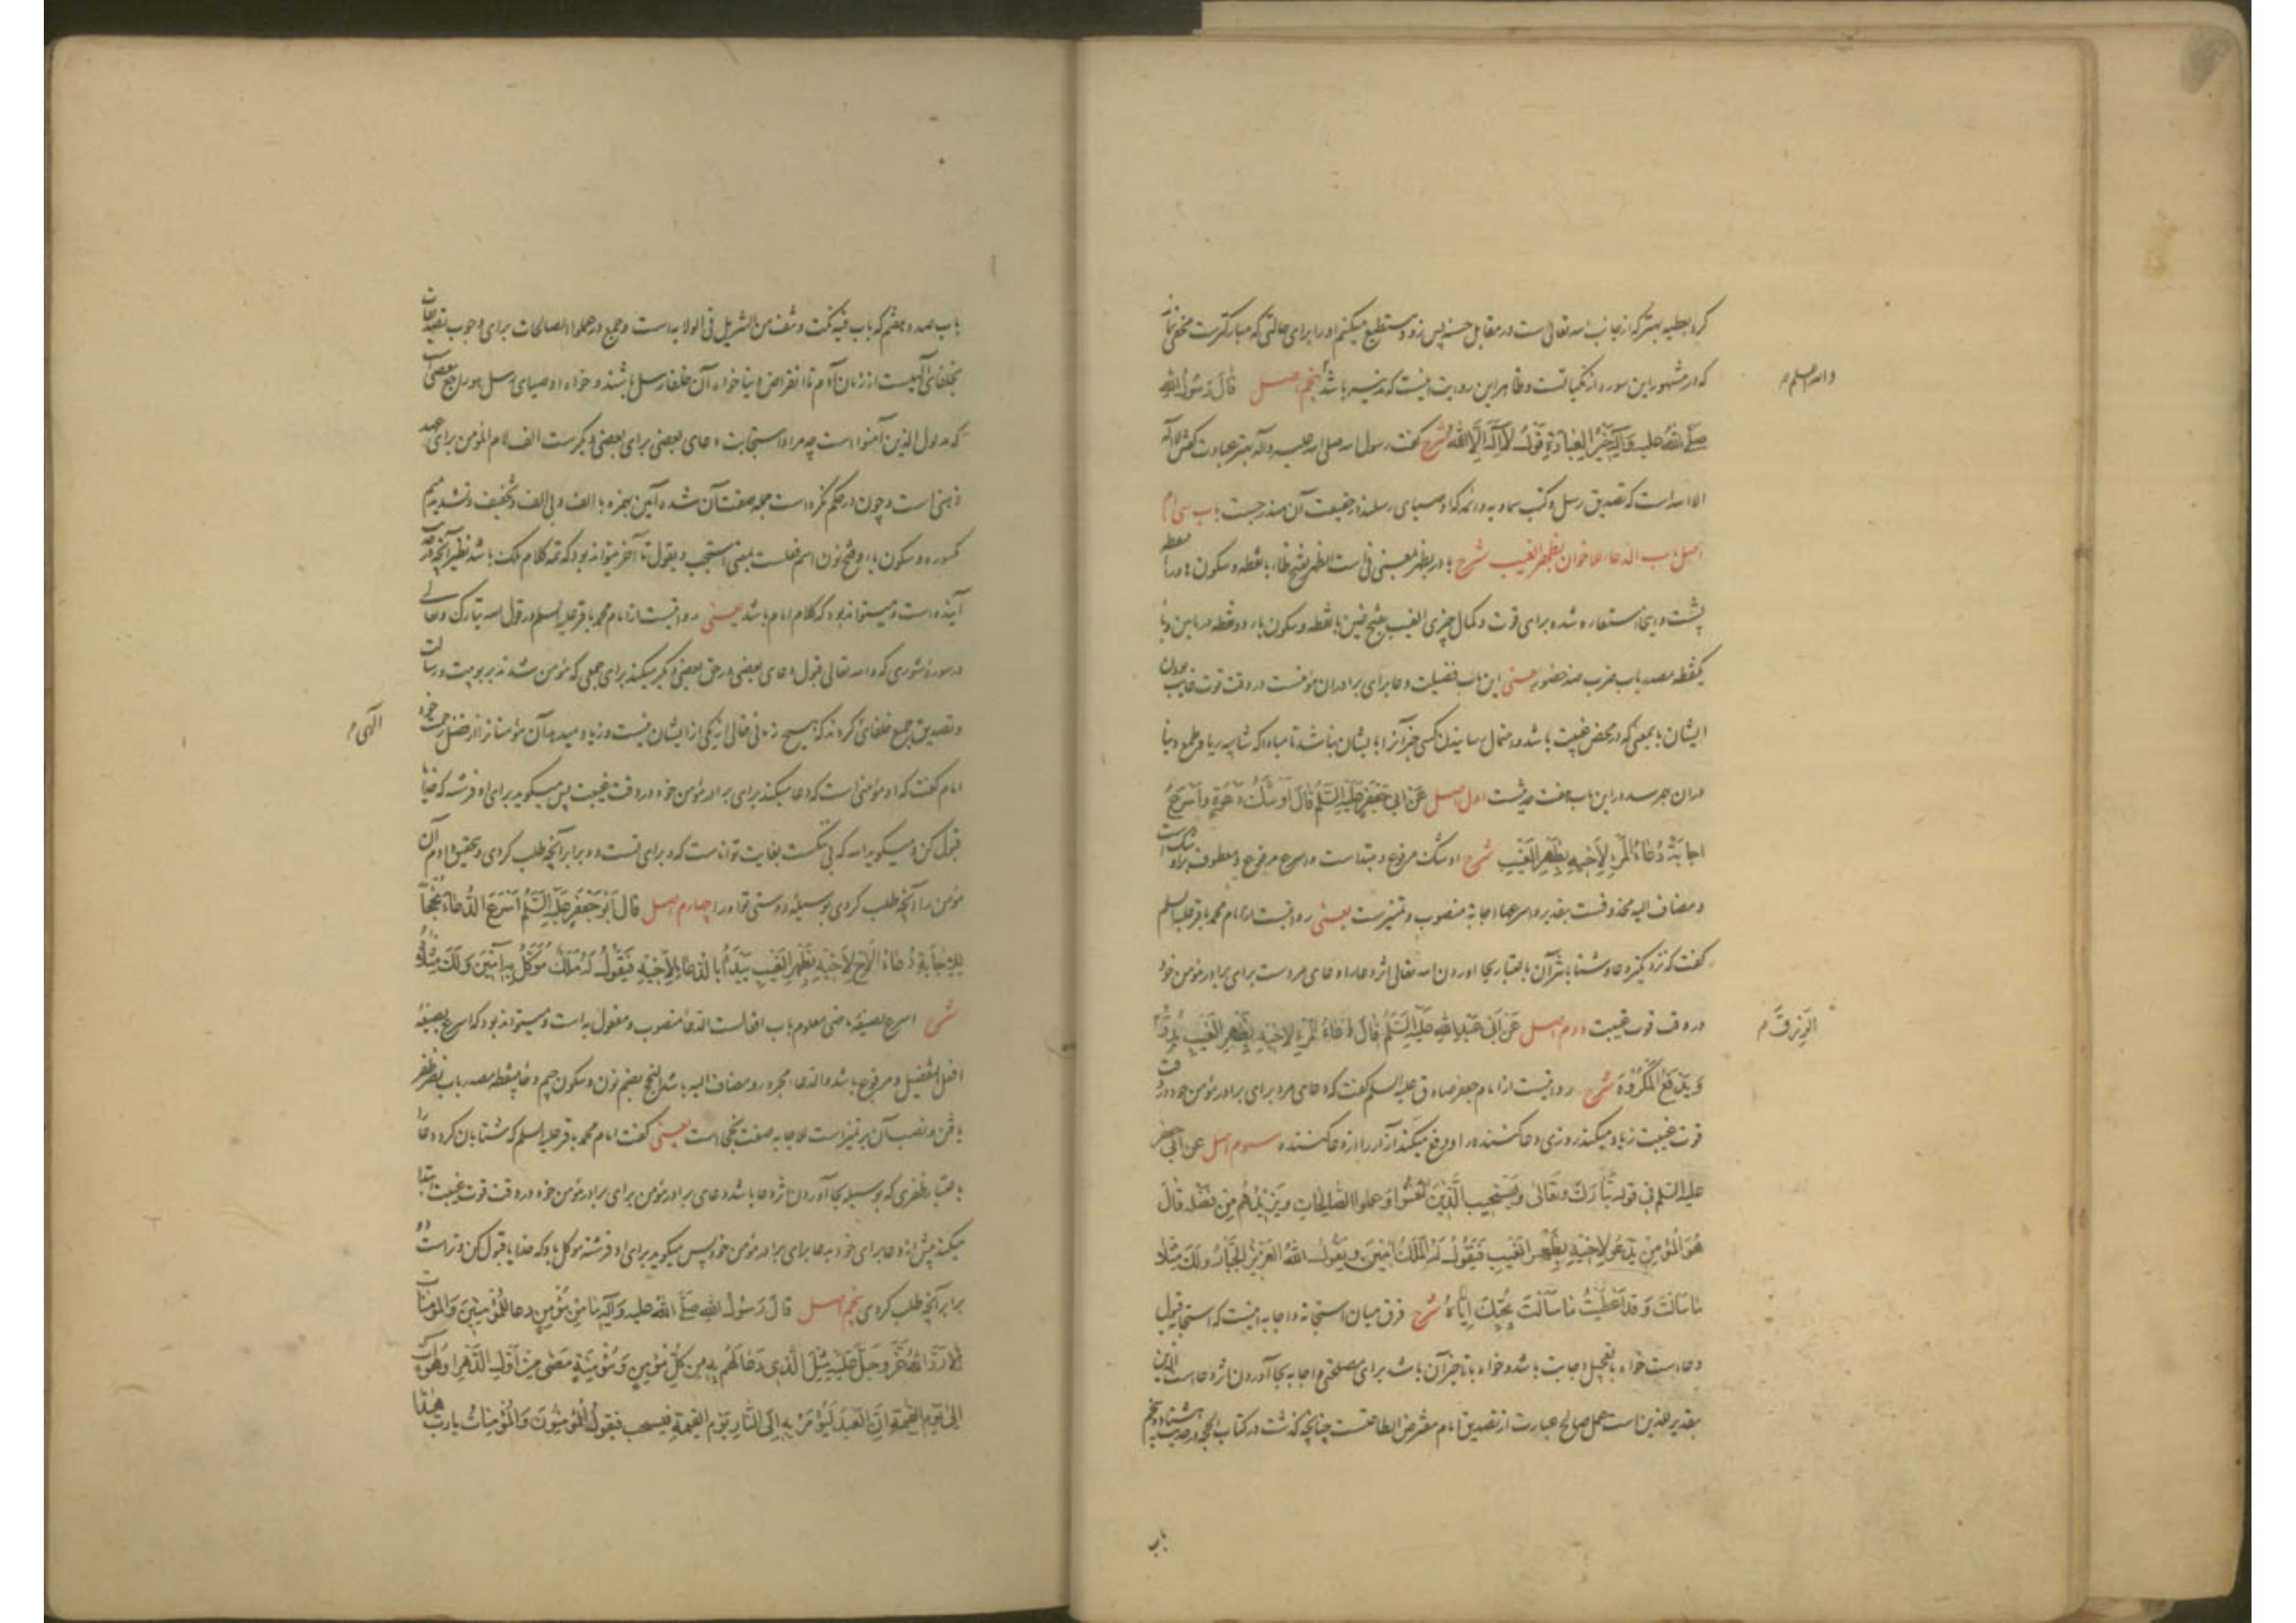 کرد بعطیه بهتر که از جانب الله تعالی است در مقابل حسنه پس زود مستطیع میکنم او را برای حالتی که مبارکترست مخفی نماند
که در مشهور این سوره از مکیاتست و ظاهر این روایت اینست که مدنیه باشد پنجم اصل قَالَ رَسُولُ اللهِ
والله اعلم م
صَلَّی اللهُ علیه وَآلِهِ خَيْرُ الْعِبَادَةِ قَوْلُ لَا إِلَهَ إِلَّا اللهُ شرح گفت رسول الله صلی الله علیه وآله بهتر عبادت گفتن لا اله
الا الله است که تصدیق رسل و کتب سماویه و ائمه که اوصیای رسلند در حقیقت آن مندرجست باب سی ام
اصل باب الدعاء للاخوان بظهر الغیب شرح با در بظهر بمعنی فی است الظهر بفتح ظاء با نقطه و سکون هاء و راء
پشت و اینجا استعاره شده برای قوت و کمال چیزی الغیب بفتح غین با نقطه و سکون یاء دو نقطه در پایین و باء
یکنقطه مصدر باب ضرب ضد حضور یعنی این باب فضیلت دعا برای برادران مؤمنست در وقت قوت غایب بودن
ایشان بمعنی که در محض غیبت باشد و احتمال رسانیدن کسی خبر آنرا بایشان نباشد تا مبادا که شایبه ریا و طمع دنیا
در آن بهم رسد در این باب هفت حدیثست اول اصل عَنْ أَبِي جَعْفَرٍ عَلَيْهِ السَّلَمُ قَالَ أَوْشَكُ دَعْوَةٍ وَأَسْرَعُ
اجابةً دُعَاءُ الْمَرْءِ لِأَخِيهِ بِظَهْرِ الْغَيْبِ شرح اوشک مرفوع و مبتدا است و اسرع مرفوع و معطوف بر اوشک است
و مضاف الیه محذوفست بتقدیر و اسرعها اجابةً منصوب و تمیزست یعنی روایتست از امام محمد باقر علیه السلم
گفت که نزدیکتر دعا و شتابنده تر آن باعتبار بجا آوردن الله تعالی اثر دعا را دعای مردست برای برادر مؤمن خود
در وقت قوت غیبت دوم اصل عَنْ أَبِي عَبْدِ اللهِ عَلَيْهِ السَّلَمُ قَالَ دُعَاءُ الْمَرْءِ لِأَخِيهِ بِظَهْرِ الْغَيْبِ يُدِرُّ
الرِّزْقَ م
وَيَدْفَعُ الْمَكْرُوهَ شرح روایتست از امام جعفر صادق علیه السلم گفت که دعای مرد برای برادر مؤمن خود در وقت
قوت غیبت زیاد میکند روزی دعا کننده را و دفع میکند آزار را از دعا کننده سوم اصل عن ابی جعفر
علیه السلم فی قوله تَبَارَكَ وَتَعَالَى وَيَسْتَجِيبُ الَّذِينَ آمَنُوا وَعَمِلُوا الصَّالِحَاتِ وَيَزِيدُهُمْ مِنْ فَضْلِهِ قَالَ
هُوَ الْمُؤْمِنُ يَدْعُو لِأَخِيهِ بِظَهْرِ الْغَيْبِ فَيَقُولُ لَهُ الْمَلَكُ آمِينَ وَيَقُولُ اللهُ الْعَزِيزُ الْجَبَّارُ وَلَكَ مِثْلَا
مَا سَأَلْتَ وَقَدْ أُعْطِيتَ مَا سَأَلْتَ بِحُبِّكَ إِيَّاهُ شرح فرق میان استجابة و اجابه اینست که استجابة قبول
دعاست خواه با تعجیل اجابت باشد و خواه با تأخیر آن باشد برای مصلحتی و اجابه بجا آوردن اثر دعاست الذین
بتقدیر للذین است عمل صالح عبارت از تصدیق امام مفترض الطاعتست چنانچه گذشت در کتاب الحجة در حدیث هشتاد و پنجم
باب
باب صد و هفتم که باب فیه نکت و نتف من التنزیل فی الولایه است و جمع در عملوا الصالحات برای وجوب تصدیقات
بخلفای الهیست از زمان آدم تا انقراض دنیا خواه آن خلفا رسل باشند و خواه اوصیای رسل هو راجع ببعضی است
که مدلول الذین آمنوا است چه مراد استجابت دعای بعضی برای بعضی دیگرست الف لام المؤمن برای عهد
ذهنی است و چون در حکم نکره است جمله صفت آن شده آمین بهمزه با الف و بی الف و تخفیف و تشدید میم
مکسوره و سکون یاء و فتح نون اسم فعلست بمعنی استجب و یقول تا آخر میتواند بود که تتمه کلام ملک باشد نظیر آنچه در
آینده است و میتواند بود که کلام امام باشد یعنی روایتست از امام محمد باقر علیه السلم در قول الله تبارک و تعالی
در سوره شوری که و الله تعالی قبول دعای بعضی در حق بعضی دیگر میکند برای جمعی که مؤمن شدند بربوبیت و رسالت
و تصدیق جمیع خلفای کردند که هیچ زمانی خالی از یکی از ایشان نیست و زیاد میدهد آن مؤمنانرا از فضل رحمت خود
الهی م
امام گفت که او مؤمنی است که دعا میکند برای برادر مؤمن خود در وقت غیبت پس میگوید برای او فرشته که خدایا
قبول کن و میگوید الله که بی ننگست بغایت تواناست که و برای تست دو برابر آنچه طلب کردی و بتحقیق دادم آن
مؤمن را آنچه طلب کردی بوسیله دوستی تو او را چهارم اصل قَالَ أَبُو جَعْفَرٍ عَلَيْهِ السَّلَمُ أَسْرَعَ الدُّعَاءُ نُجْحًا
لِلْإِجَابَةِ دُعَاءُ الْأَخِ لِأَخِيهِ بِظَهْرِ الْغَيْبِ يَبْدَأُ بِالدُّعَاءِ لِأَخِيهِ فَيَقُولُ لَهُ مَلَكٌ مُوَكَّلٌ بِهِ آمِينَ وَلَكَ مِثْلَاهُ
شرح اسرع بصیغه ماضی معلوم باب افعالست الدعا منصوب و مفعول به است و میتواند بود که اسرع بصیغه
افعل التفضیل و مرفوع باشد و الدعاء مجرور و مضاف الیه باشد النجح بضم نون و سکون جیم و حاء بینقطه مصدر باب نصر ظفر
یافتن و نصب آن بر تمیز است للاجابه صفت نجحی است یعنی گفت امام محمد باقر علیه السلم که شتابان کرد دعا را
باعتبار ظفری که بوسیله بجا آوردن اثر دعا باشد دعای برادر مؤمن برای برادر مؤمن خود در وقت قوت غیبت ابتدا
میکند پیش از دعا برای خود بدعا برای برادر مؤمن خود پس میگوید برای او فرشته موکل باو که خدایا قبول کن و تراست دو
برابر آنچه طلب کردی پنجم اصل قَالَ رَسُولُ اللهِ صَلَّی اللهُ علیه وَآلِهِ مَا مِنْ مُؤْمِنٍ دعا لِلْمُؤْمِنِينَ وَالْمُؤْمِنَاتِ
إِلَّا رَدَّ اللهُ عَزَّ وَجَلَّ عَلَيْهِ مِثْلَ الَّذِي دَعَا لَهُمْ بِهِ مِنْ كُلِّ مُؤْمِنٍ وَمُؤْمِنَةٍ مَضَى مِنْ أَوَّلِ الدَّهْرِ أَوْ هُوَ آتٍ
إِلَى يَوْمِ الْقِيمَةِ إِنَّ الْعَبْدَ لَيُؤْمَرُ بِهِ إِلَى النَّارِ يَوْمَ الْقِيمَةِ فَيُسْحَبُ فَيَقُولُ الْمُؤْمِنُونَ وَالْمُؤْمِنَاتُ يَا رَبِّ هَذَا